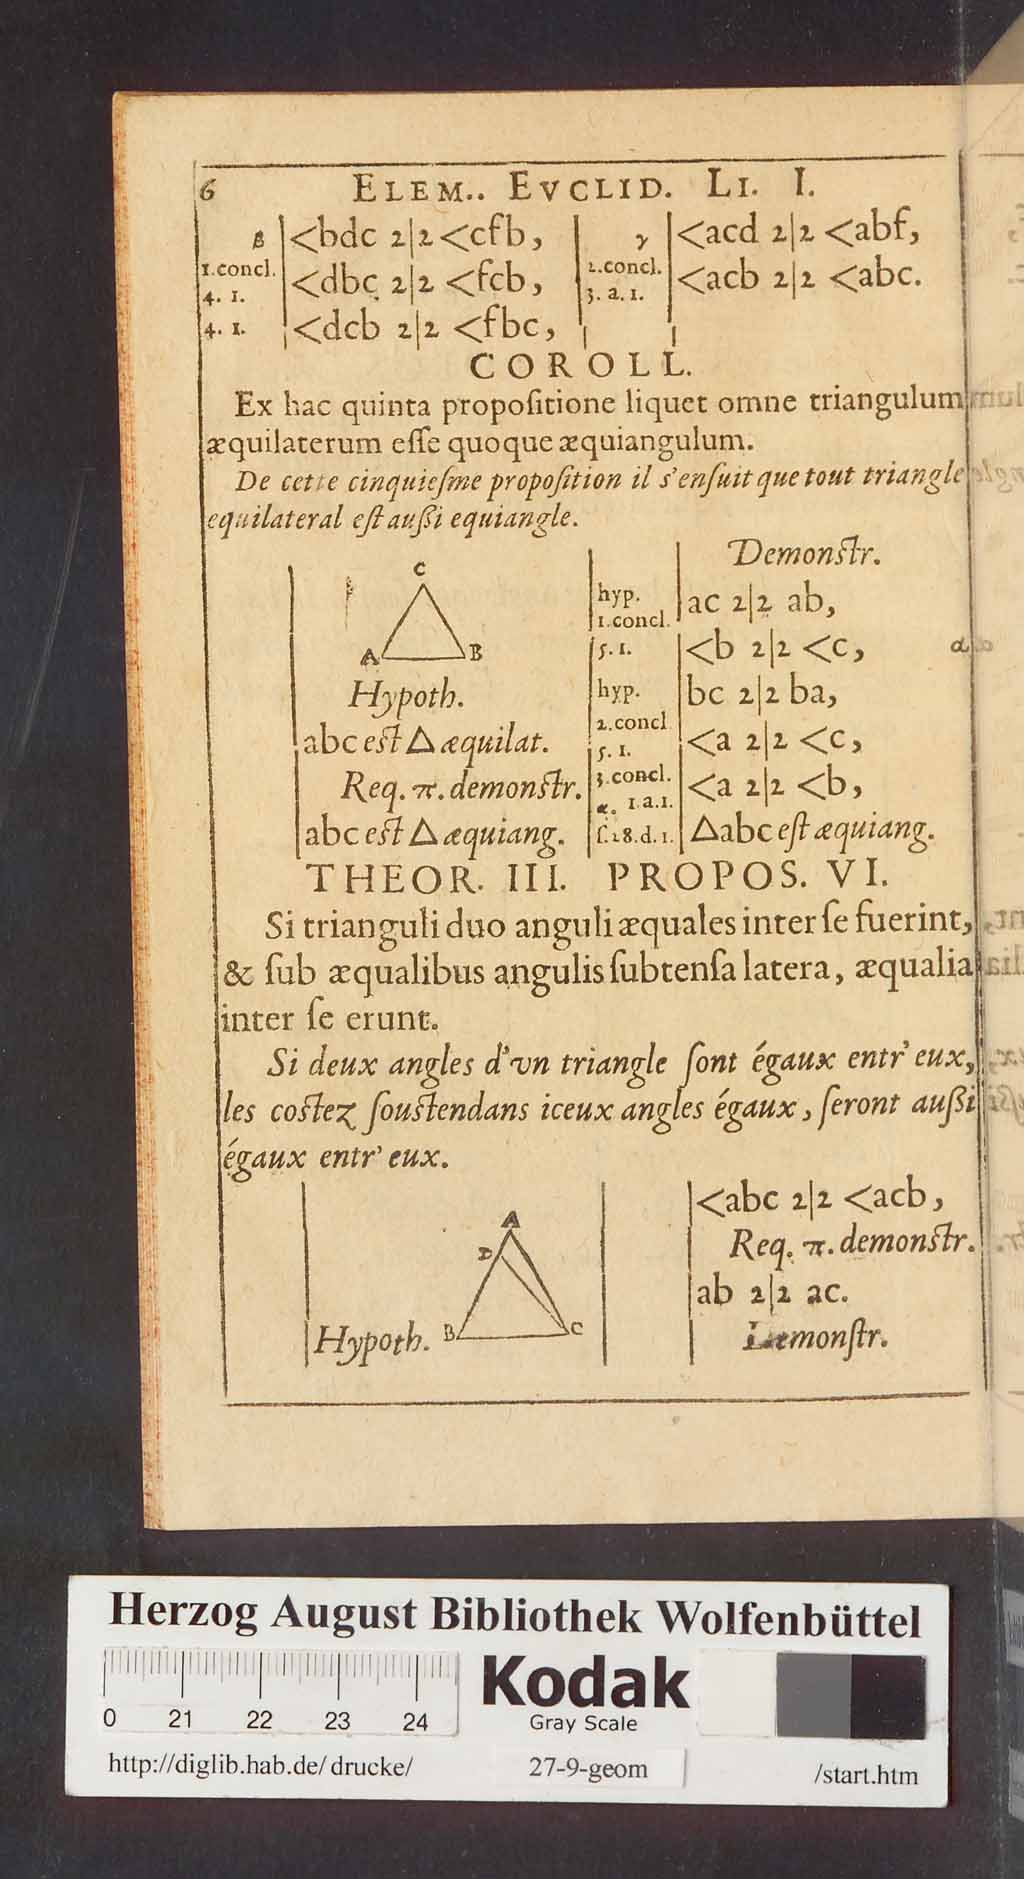 6 ELEM.. EVCLID. LI. I.
β <bdc 2|2 <cfb,
1.concl. <dbc 2|2 <fcb,
4. 1.
4. 1. <dcb 2|2 <fbc,
γ <acd 2|2 <abf,
2.concl. <acb 2|2 <abc.
3. a. 1.
COROLL.
Ex hac quinta propoſitione liquet omne triangulum
æquilaterum eſſe quoque æquiangulum.
De cette cinquieſme propoſition il s'enſuit que tout triangle
equilateral eſt auſſi equiangle.
C
A B
Hypoth.
abc eſt △ æquilat.
Req. π. demonſtr.
abc eſt △ æquiang.
Demonſtr.
hyp. ac 2|2 ab,
1.concl.
5. 1. <b 2|2 <c, α
hyp. bc 2|2 ba,
2.concl
5. 1. <a 2|2 <c,
3.concl. <a 2|2 <b,
α. 1.a.1.
ſ.28.d.1. △abc eſt æquiang.
THEOR. III. PROPOS. VI.
Si trianguli duo anguli æquales inter ſe fuerint,
& ſub æqualibus angulis ſubtenſa latera, æqualia
inter ſe erunt.
Si deux angles d'vn triangle ſont égaux entr' eux,
les coſtez ſouſtendans iceux angles égaux, ſeront auſſi
égaux entr' eux.
A
D
B C
Hypoth.
<abc 2|2 <acb,
Req. π. demonſtr.
ab 2|2 ac.
Demonſtr.
Herzog August Bibliothek Wolfenbüttel
0 21 22 23 24
Kodak
Gray Scale
http://diglib.hab.de/drucke/ 27-9-geom /start.htm